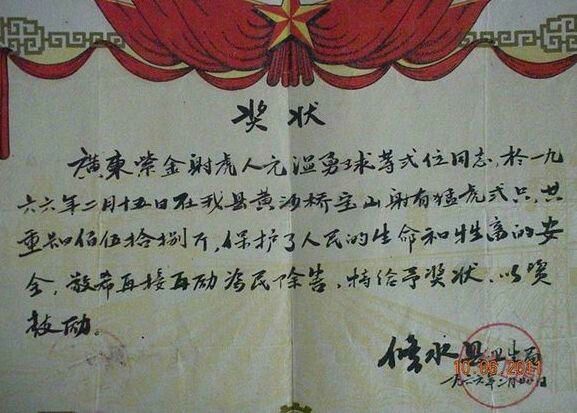 奖状
廣東紫金射虎人元温勇球等弍位同志,於一九
六六年二月十五日在我县黄沙桥宝山射有猛虎弍只,共
重肆佰伍拾捌斤,保护了人民的生命和牲畜的安
全,敬希再接再励为民除害,特给予奖状,以资
鼓励。
修水县卫生局
一九六六年二月
10.06.2011